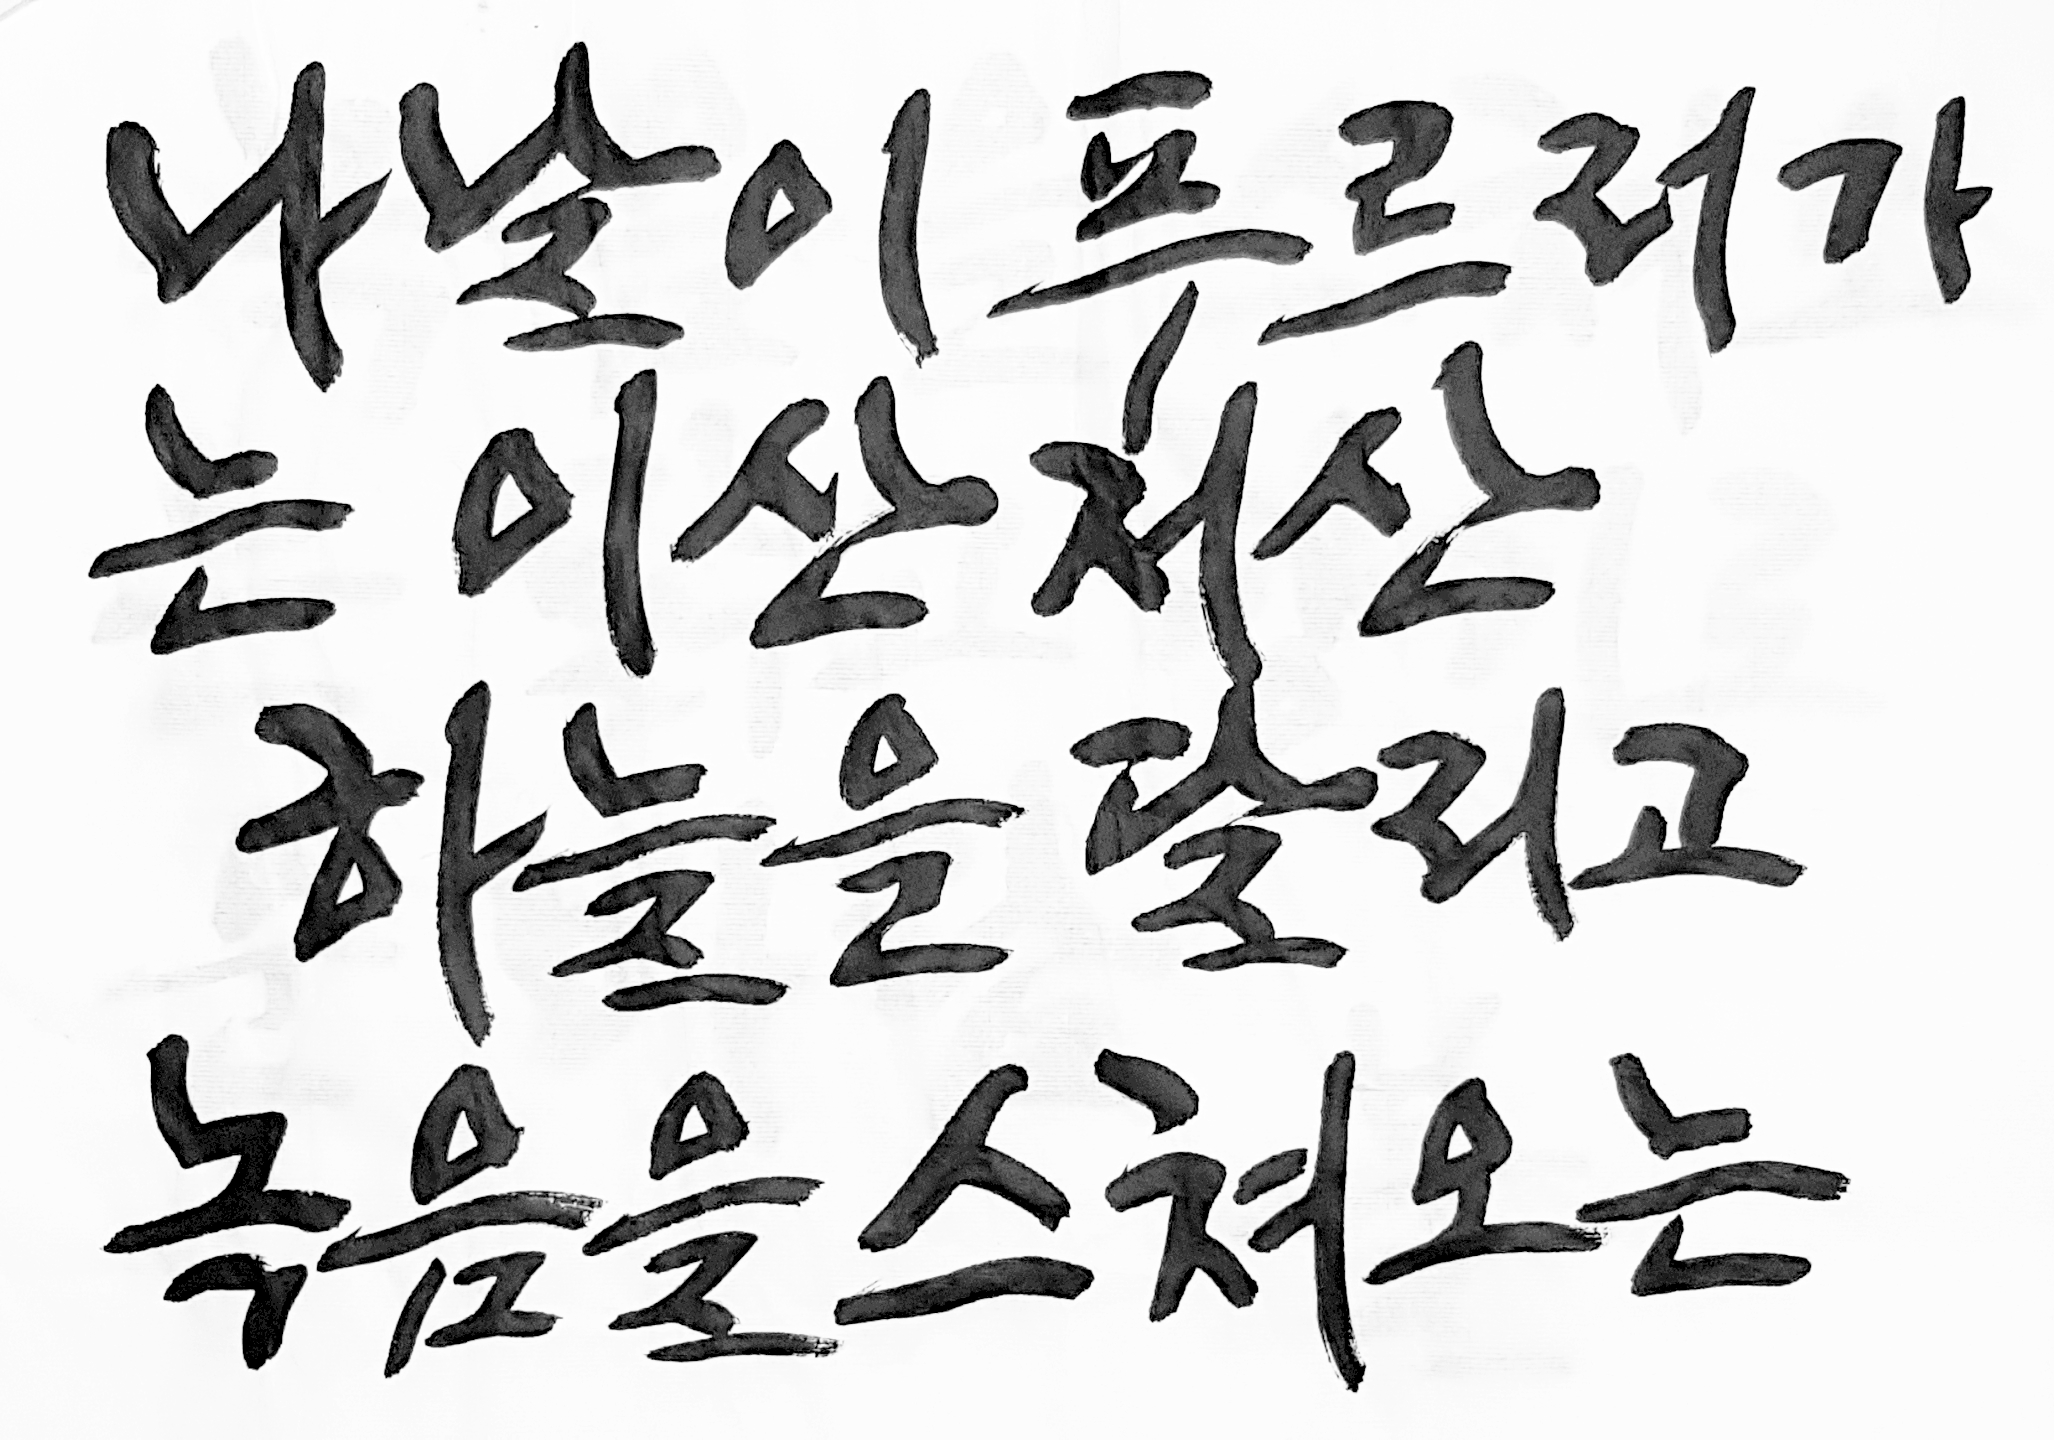 나날이 푸르러가
는 이산 저산
하늘을 달리고
녹음을 스쳐오는